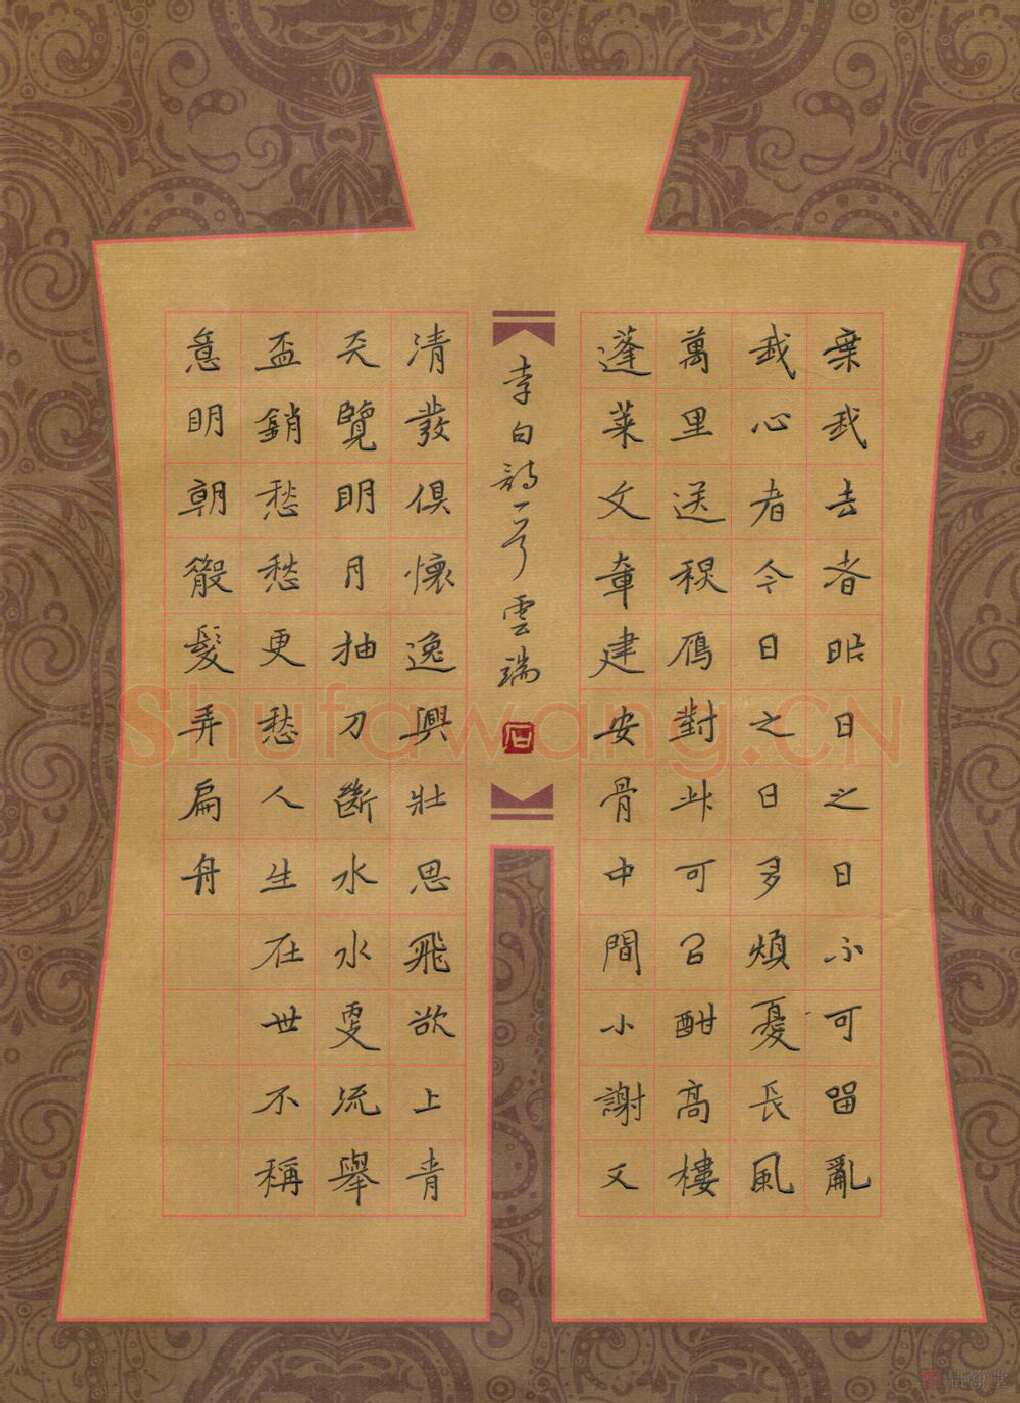 棄我去者昨日之日不可留亂
我心者今日之日多煩憂長風
萬里送秋雁對此可以酣高樓
蓬萊文章建安骨中間小謝又
李白詩一首 雲端
清發俱懷逸興壯思飛欲上青
天覽明月抽刀斷水水更流舉
盃銷愁愁更愁人生在世不稱
意明朝散髮弄扁舟
Shufawang.CN